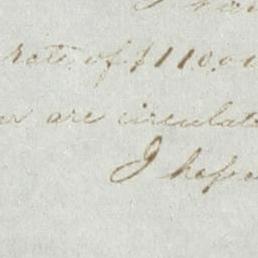 rate of $1100
are circulate
I hope